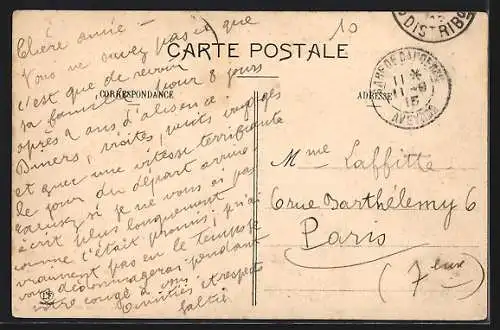 Chère amie —
Vous ne savez pas ce que
c'est que de revoir
sa famille pour 8 jours
après 2 ans d'absence.
Diners, visites, nuits voyages
et avec une vitesse terrifiante
le jour du départ arrive
excusez si je ne vous ai pas
écrit plus longuement
comme c'était promis; je n'ai
vraiment pas eu le temps je
vous dédommagerai pendant
votre congé à vous
Amitiés et respects
10
CARTE POSTALE
CORRESPONDANCE
ADRESSE
DISTRIB
11 - *
11 - 9
15
AVEYRON
Mme Laffitte
6 rue Barthélemy 6
Paris
(7